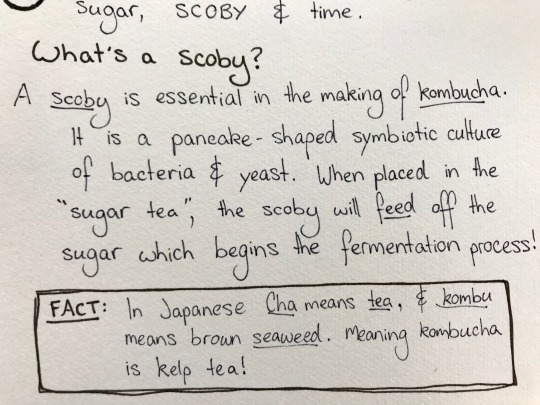 sugar, SCOBY & time.
What's a scoby?
A scoby is essential in the making of kombucha.
It is a pancake-shaped symbiotic culture
of bacteria & yeast. When placed in the
"sugar tea", the scoby will feed off the
sugar which begins the fermentation process!
FACT: In Japanese Cha means tea, & kombu
means brown seaweed. Meaning kombucha
is kelp tea!